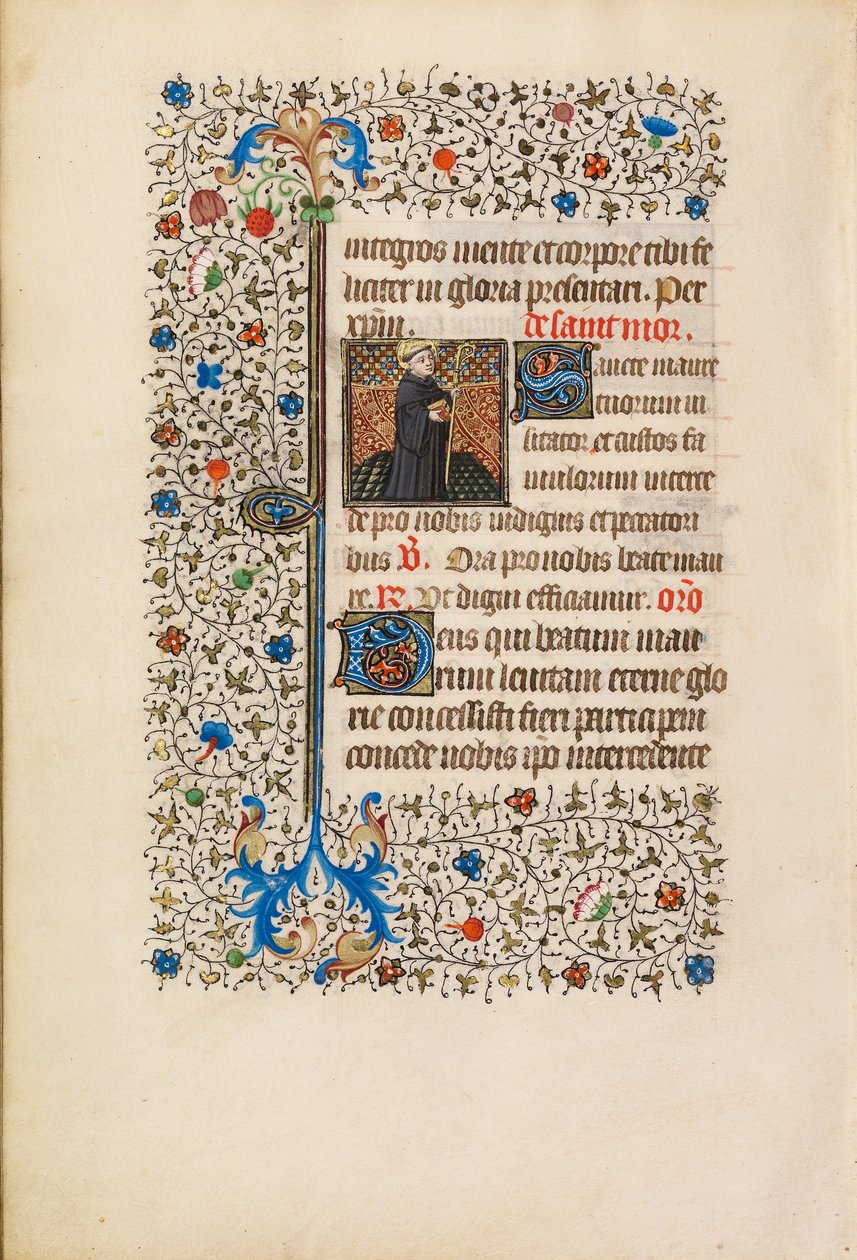 integros mente et corpore tibi fe
liciter in gloria presentari. Per
xpm̄. de saint mor.
Sancte maure
tuorum in
sitator et custos fa
mulorum interce
de pro nobis indignis et peccatori
bus V̄. Ora pro nobis beate mau
re. R. Ut digni efficiamur. or̄o
Deus qui beatum mau
rum leuitam eterne glo
rie concessisti fieri participem
concede nobis ip̄o intercedente